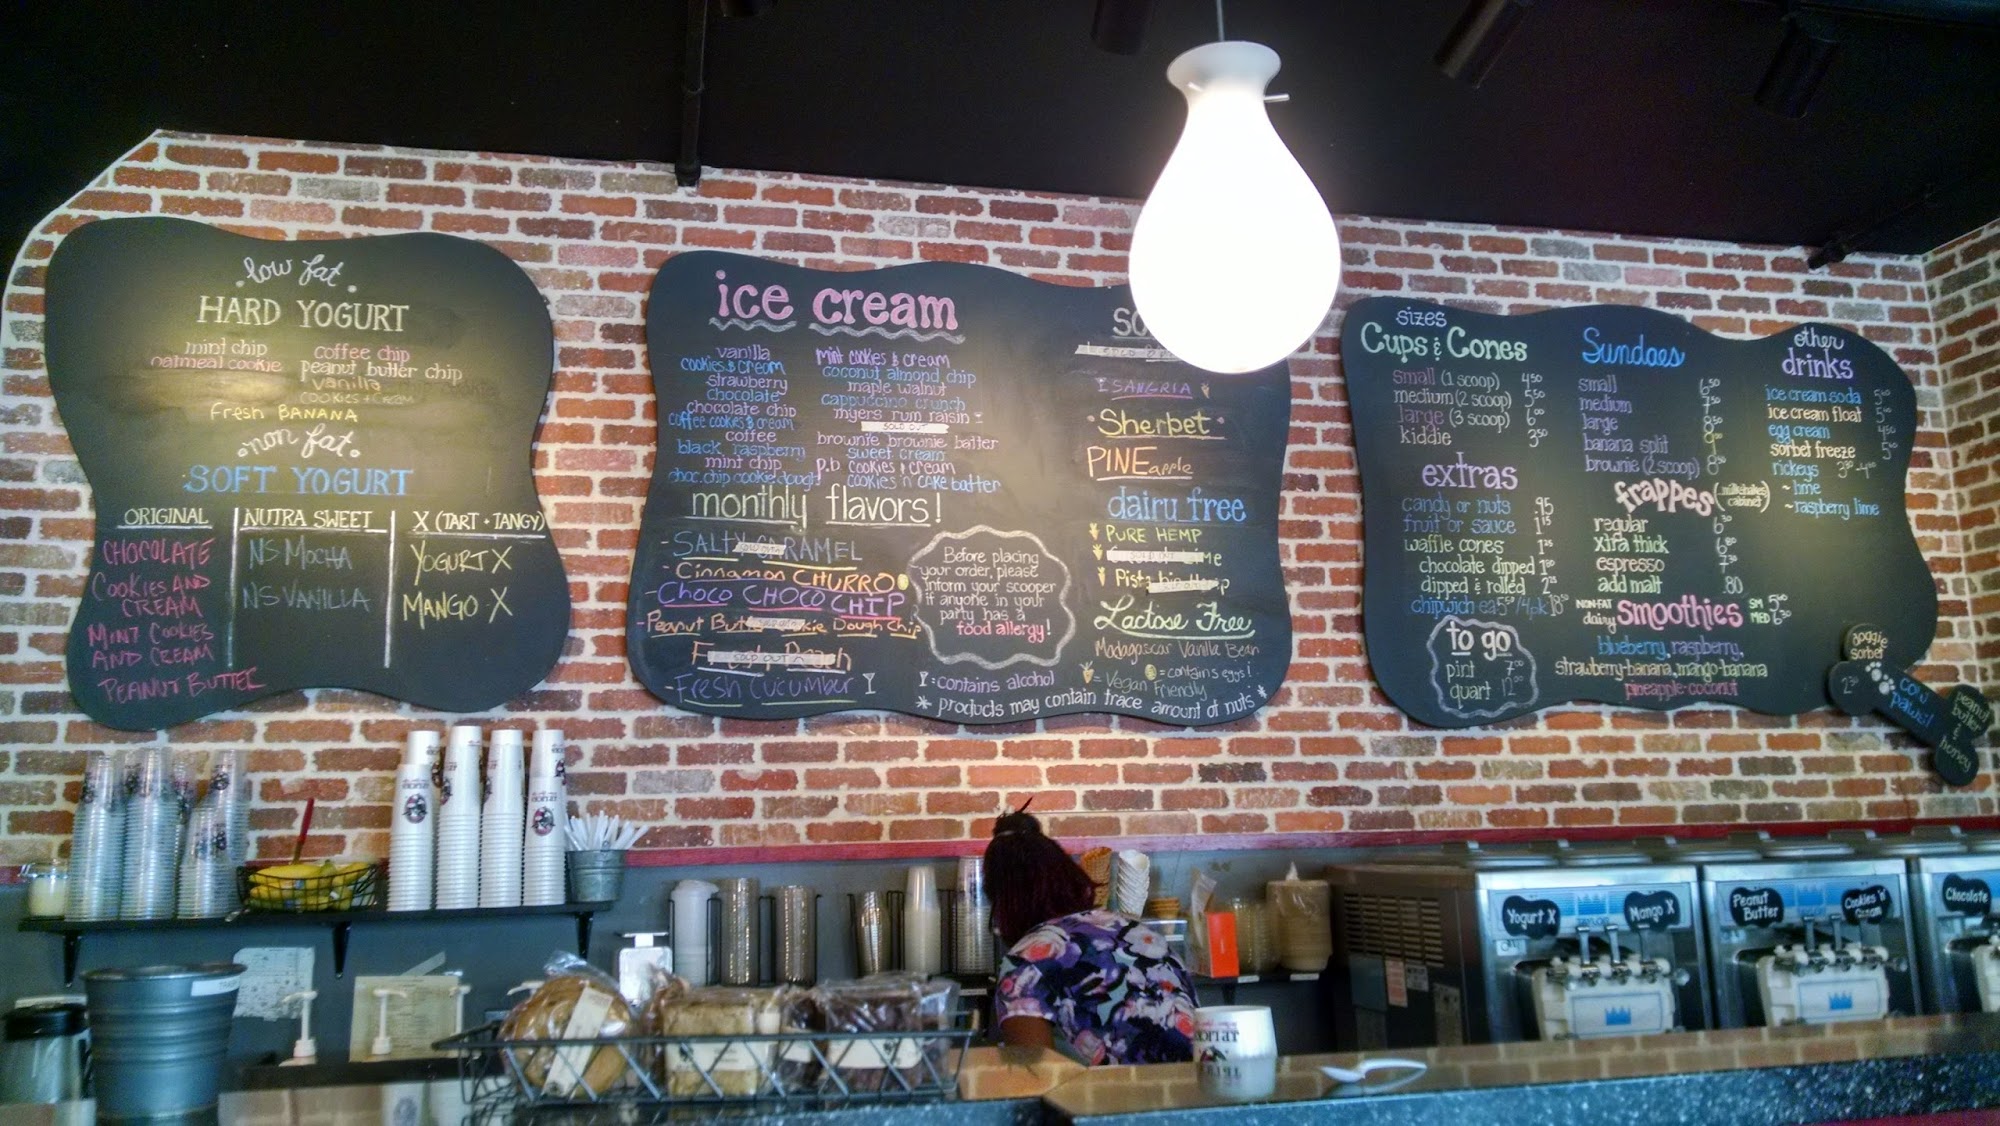 low fat
HARD YOGURT
mint chip
oatmeal cookie
coffee chip
peanut butter chip
vanilla
cookies + cream
Fresh BANANA
non fat
SOFT YOGURT
ORIGINAL
CHOCOLATE
COOKIES AND
CREAM
MINT COOKIES
AND CREAM
PEANUT BUTTER
NUTRA SWEET
NS MOCHA
NS VANILLA
X (TART + TANGY)
YOGURT X
MANGO X
ice cream
vanilla
cookies & cream
strawberry
chocolate
chocolate chip
coffee cookies & cream
coffee
black raspberry
mint chip
choc. chip cookie dough
mint cookies & cream
coconut almond chip
maple walnut
cappuccino crunch
myers rum raisin
SOLD OUT
brownie brownie batter
sweet cream
p.b cookies & cream
cookies 'n' cake batter
monthly flavors!
- SALTY CARAMEL
- Cinnamon CHURRO
- CHOCO CHOCO CHIP
- Peanut Butter Cookie Dough Chip
Fresh Peach
SOLD OUT
- FRESH CUCUMBER
Before placing
your order, please
inform your scooper
if anyone in your
party has a
food allergy!
= contains alcohol
SO
SANGRIA
Sherbet
PINEapple
dairy free
PURE HEMP
me
Pista
Lactose Free
Madagascar Vanilla Bean
= contains eggs!
= Vegan Friendly
* products may contain trace amount of nuts *
sizes
Cups & Cones
small (1 scoop) 4.50
medium (2 scoop) 5.50
large (3 scoop) 6.00
kiddie 3.50
extras
candy or nuts .95
fruit or sauce 1.15
waffle cones 1.25
chocolate dipped 1.80
dipped & rolled 2.25
chipwich ea 5.50/4pk 18.50
to go
pint 7.00
quart 12.00
Sundaes
small 6.50
medium 7.50
large 8.50
banana split
brownie (2 scoop) 8.50
frappes (milkshakes cabinet)
regular 6.30
xtra thick 6.80
espresso 7.30
add malt .80
NON-FAT
dairy
smoothies
SM 5.60
MED 6.30
blueberry, raspberry,
strawberry-banana, mango-banana
pineapple-coconut
other
drinks
ice cream soda
ice cream float
egg cream 4.50
sorbet freeze 5.50
rickeys
~ lime
~ raspberry lime
doggie
sorbet
2.50
COW
PAWS!
peanut
butter
&
honey
Yogurt X
Mango X
Peanut
Butter
Cookies 'n'
Cream
Chocolate